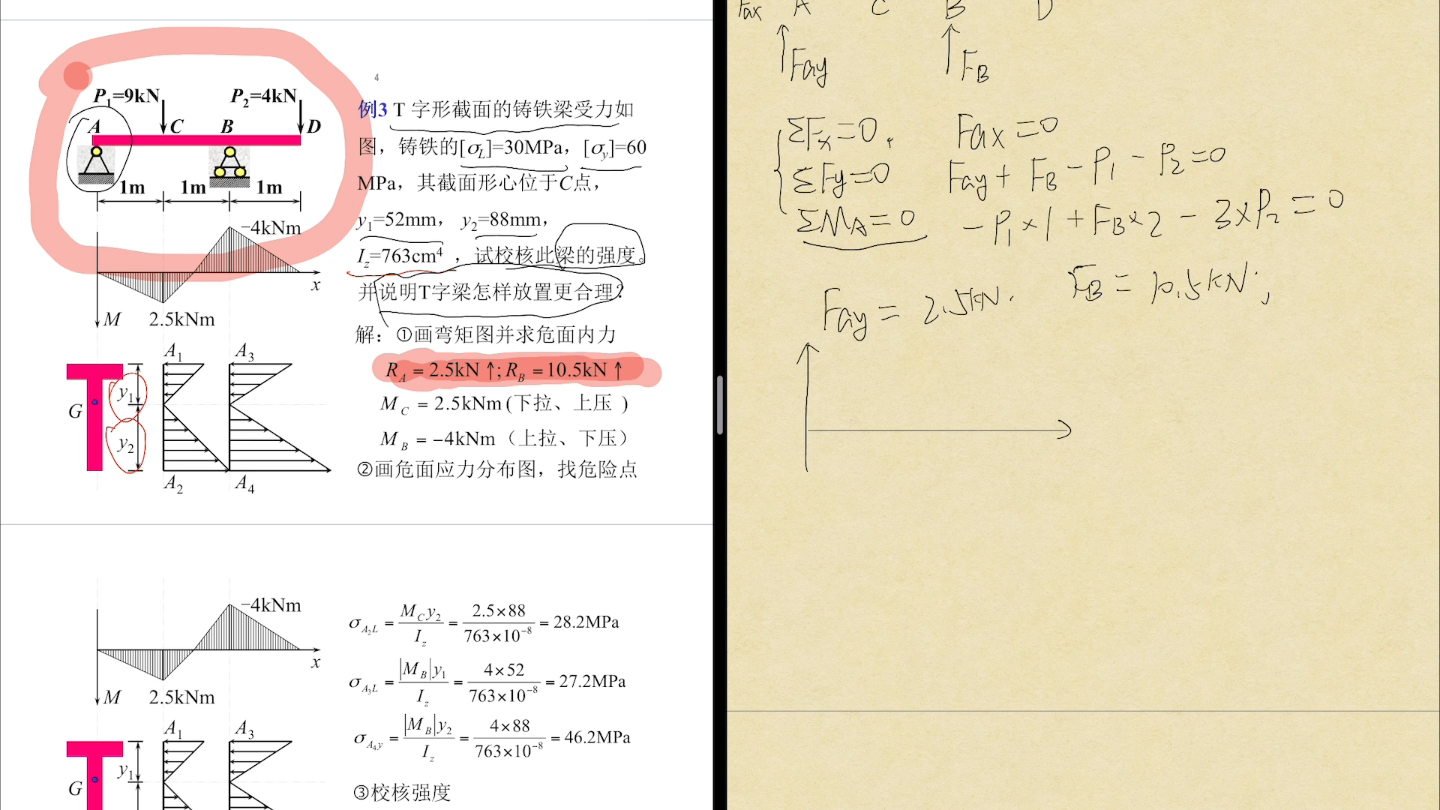 4
P₁=9kN P₂=4kN
A C B D
1m 1m 1m
−4kNm
x
M 2.5kNm
A₁ A₃
G y₁
y₂
A₂ A₄
例3 T 字形截面的铸铁梁受力如
图，铸铁的[σL]=30MPa，[σy]=60
MPa，其截面形心位于C点，
y₁=52mm， y₂=88mm，
I_z=763cm⁴ ，试校核此梁的强度。
并说明T字梁怎样放置更合理？
解：①画弯矩图并求危面内力
R_A = 2.5kN ↑; R_B = 10.5kN ↑
M_C = 2.5kNm (下拉、上压 )
M_B = −4kNm （上拉、下压）
②画危面应力分布图，找危险点
−4kNm
x
M 2.5kNm
A₁ A₃
G y₁
σ_A₂L = M_C y₂ / I_z = 2.5×88 / 763×10⁻⁸ = 28.2MPa
σ_A₃L = |M_B| y₁ / I_z = 4×52 / 763×10⁻⁸ = 27.2MPa
σ_A₄y = |M_B| y₂ / I_z = 4×88 / 763×10⁻⁸ = 46.2MPa
③校核强度
Fax A C B D
Fay FB
ΣFx=0. Fax=0
ΣFy=0 Fay+FB−P₁−P₂=0
ΣMA=0 −P₁×1+FB×2−3×P₂=0
Fay=2.5kN. FB=10.5kN;